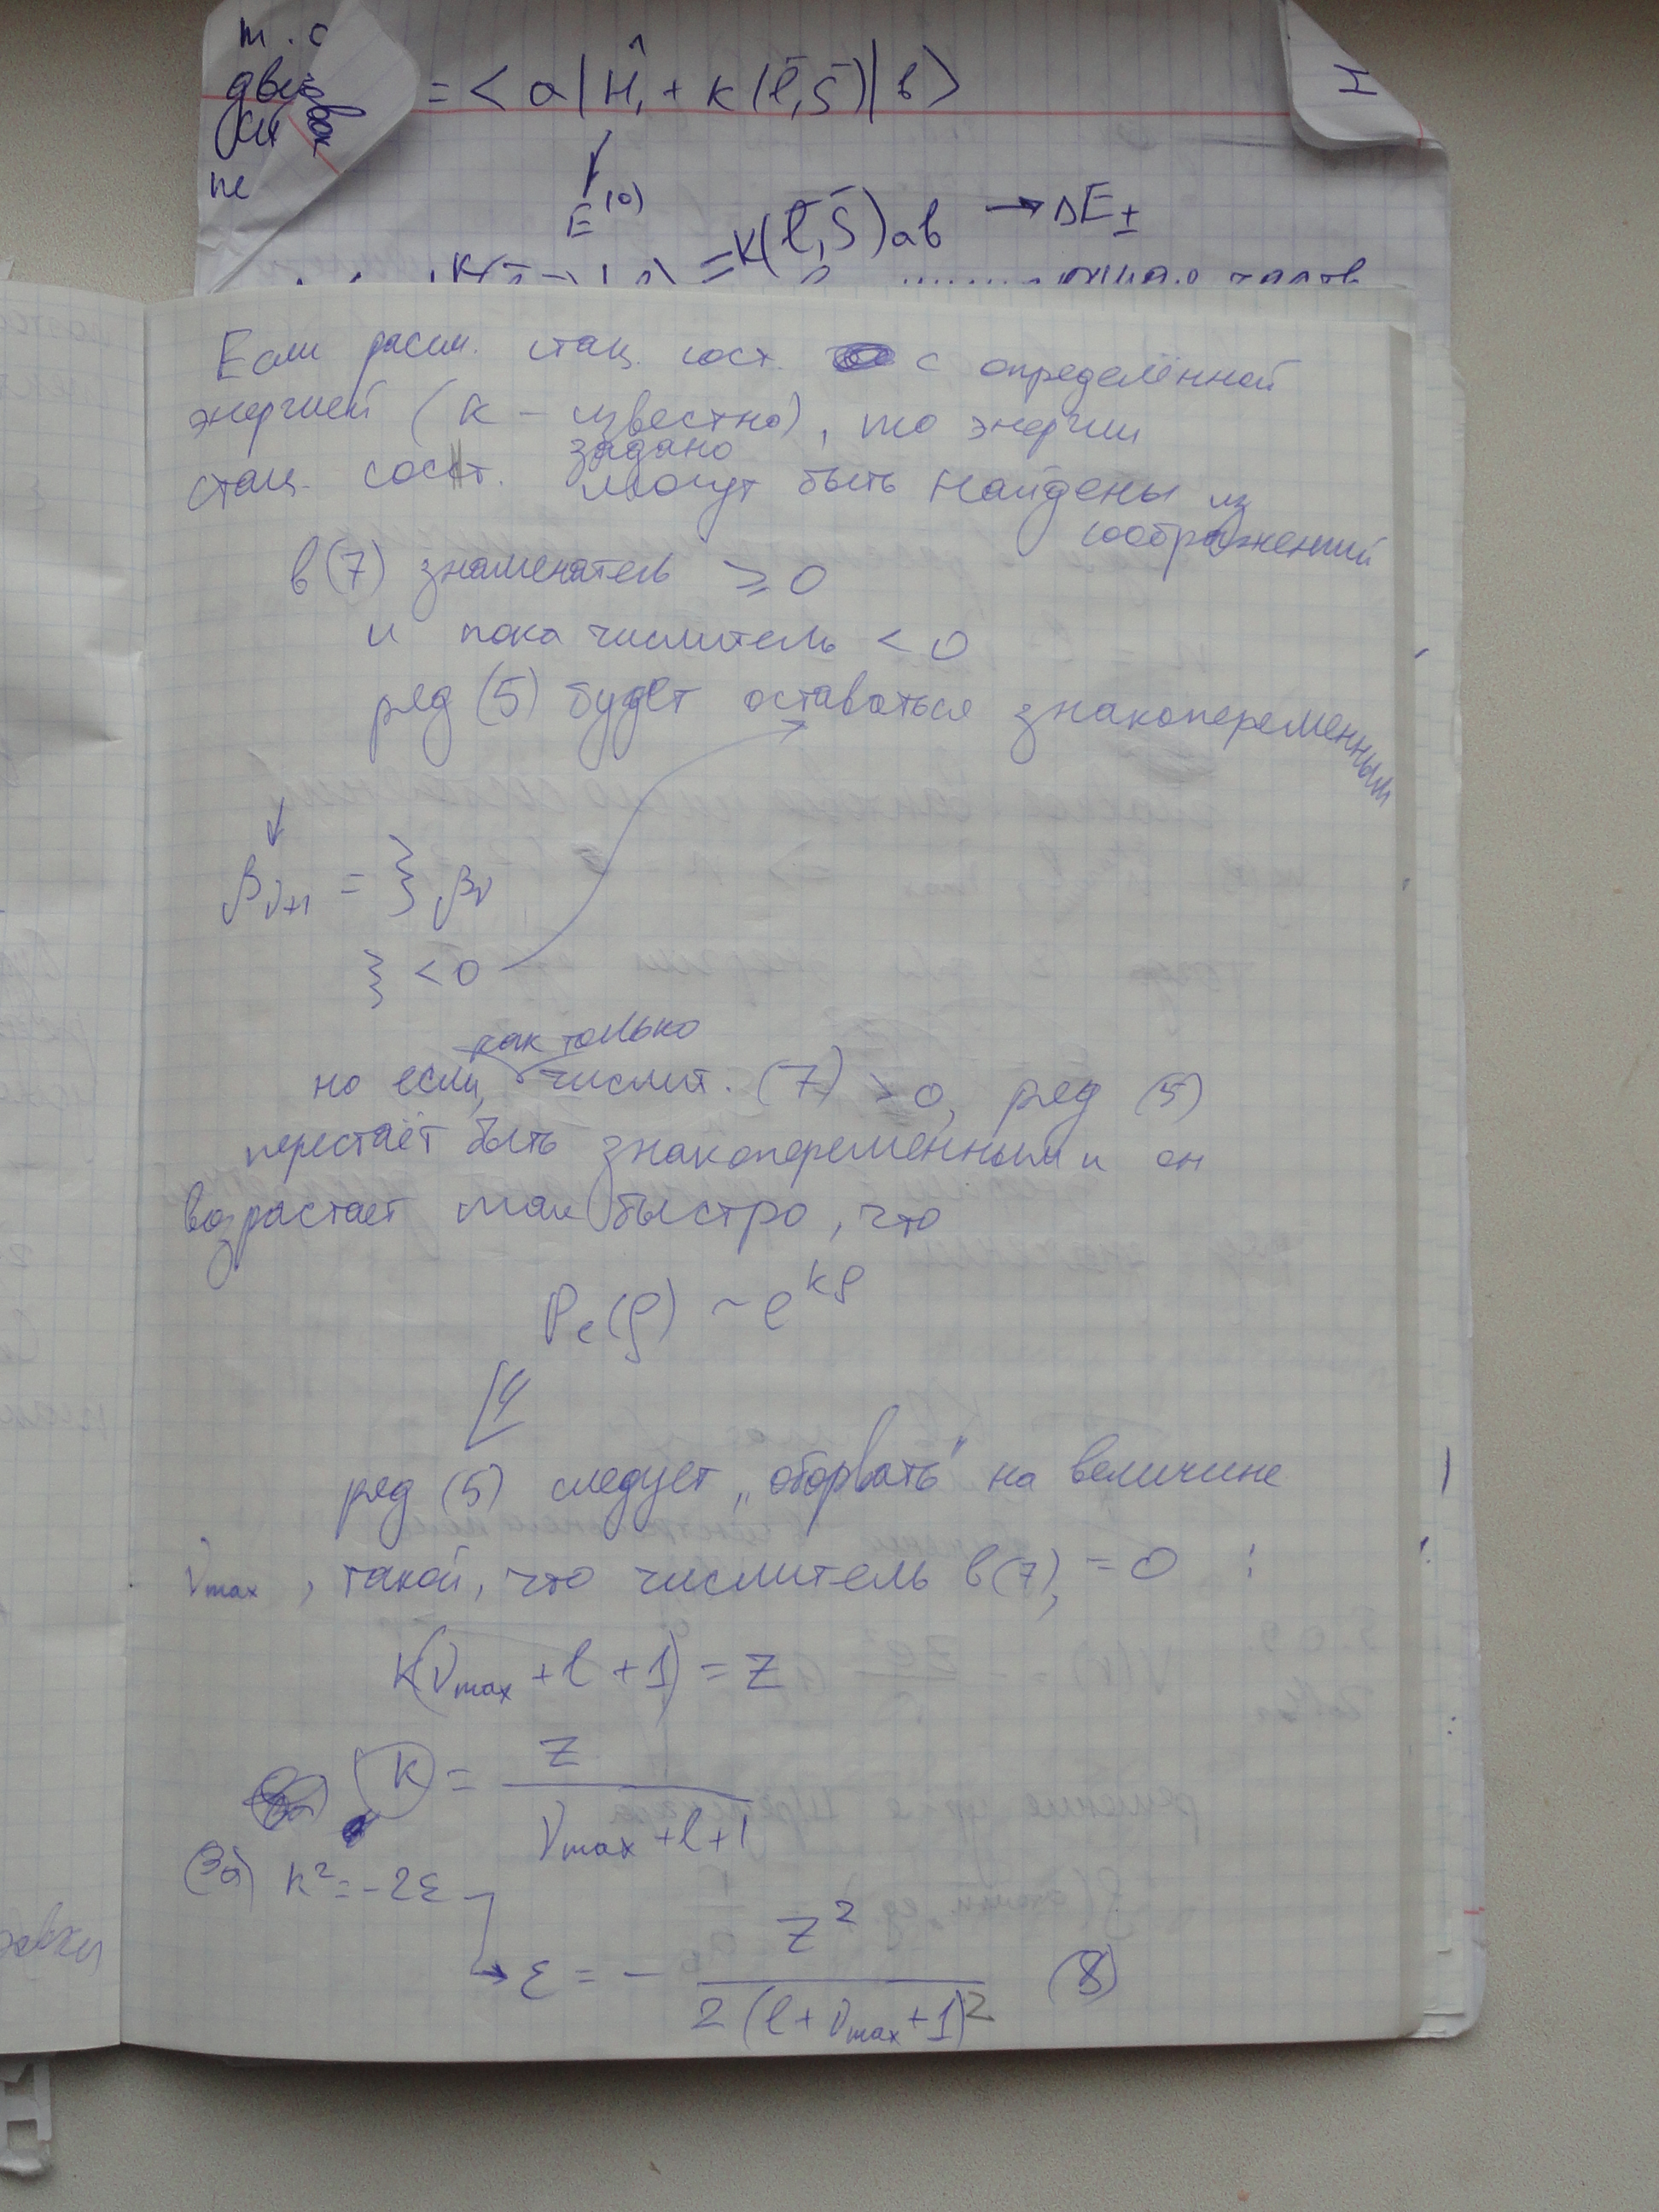 т. с
дви
ки
не
= < a | Ĥ₁ + к (l̄, s̄) | в >
I
E⁽⁰⁾
= к( l̄, s̄ )ав → ΔE±
Если рассм. стац. сост. с определённой
энергией (к – известно), то энергии
задано
стац. сост. могут быть найдены из
соображений
в (7) знаменатель ≥ 0
и пока числитель < 0
ряд (5) будет оставаться знакопеременным
βν+1 = } βν
} < 0
как только
но если, числит. (7) > 0, ряд (5)
перестаёт быть знакопеременным и он
возрастает так быстро, что
Pₑ(ρ) ~ e^{kρ}
ряд (5) следует „оборвать" на величине
νmax , такой, что числитель в (7) = 0 :
к(νmax + l + 1) = Z
к = Z / (νmax + l + 1)
(3а) к² = -2ε
→ ε = - Z² / 2 (l + νmax + 1)² (8)